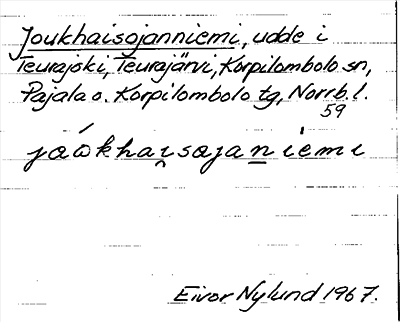 Joukhaisojanniemi, udde i
Teurajski, Teurajärvi, Korpilombolo sn,
Pajala o. Korpilombolo tg, Norrb. l.
59
jaỏkhai̯sajaṉiemi
Eivor Nylund 1967.